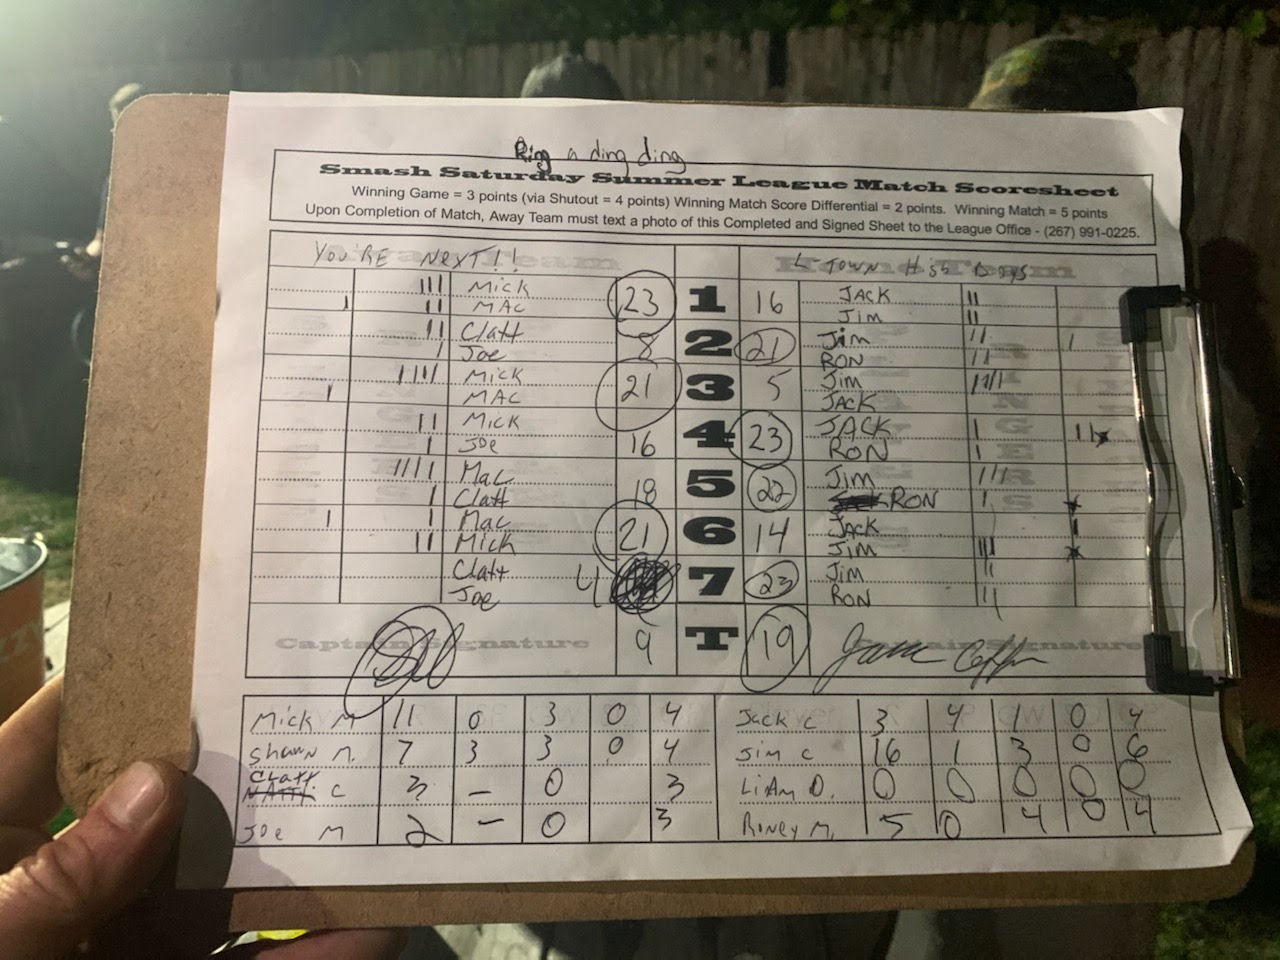 Ring a ding ding
Smash Saturday Summer League Match Scoresheet
Winning Game = 3 points (via Shutout = 4 points) Winning Match Score Differential = 2 points. Winning Match = 5 points
Upon Completion of Match, Away Team must text a photo of this Completed and Signed Sheet to the League Office - (267) 991-0225.
YOU'RE NEXT!! L-TOWN
III Mick 23 1 16 JACK II
I II MAC Jim II
II Clatt 8 2 21 Jim II I
I Joe RON II
IIII Mick 21 3 5 Jim IIII
I MAC JACK
II Mick 16 4 23 JACK I II
I Joe RON I
IIII Mac 18 5 22 Jim III
I Clatt RON I
I I Mac 21 6 14 Jack I
II Mick Jim III
Clatt 4 7 23 Jim II
Joe RON II
Captain Signature 9 T 19 Captain Signature
Mick M 11 0 3 0 4 Jack C 3 4 1 0 4
Shawn M. 7 3 3 0 4 Jim C 16 1 3 0 6
Clatt C 3 - 0 3 LiAm D. 0 0 0 0 0
Joe M 2 - 0 3 Roney M. 5 0 4 0 4